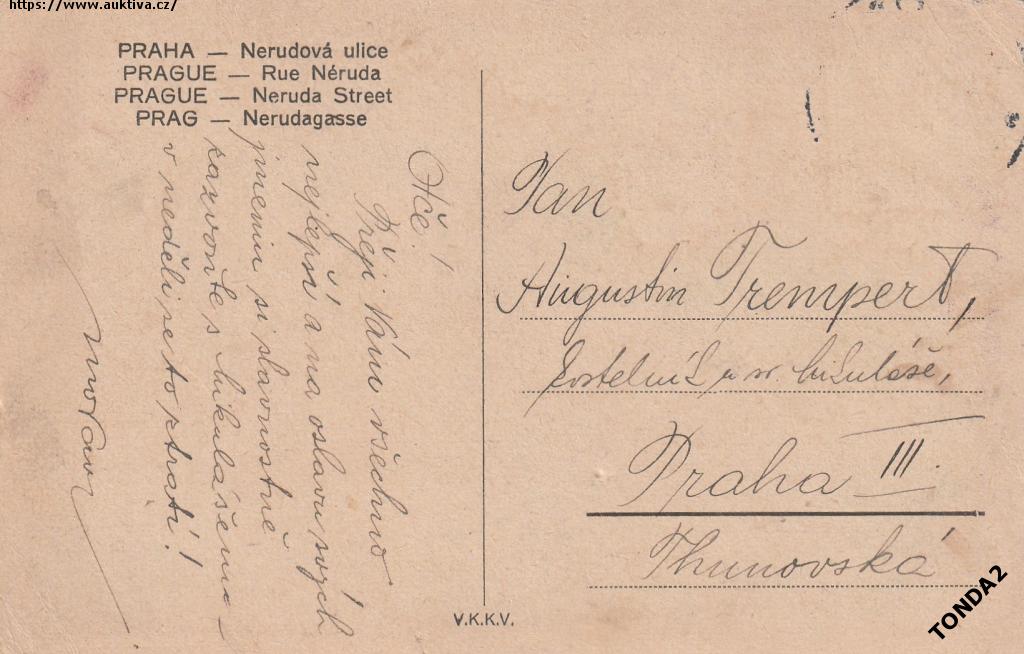 https://www.auktiva.cz/
PRAHA — Nerudová ulice
PRAGUE — Rue Néruda
PRAGUE — Neruda Street
PRAG — Nerudagasse
Otče!
Přeji Vám všechno
nejlepší a na oslavu svých
jmenin si slavnostně
zazvonte s Mikulášem –
v neděli se to ztratí!
Pan
Augustin Trempert,
kostelník u sv. Mikuláše,
Praha III.
Thunovská
V.K.K.V.
TONDA2